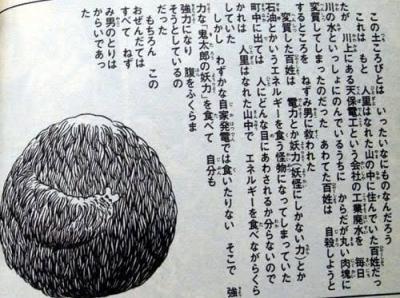 この土ころびとは　いったいなにものなんだろう
これは　もと　人里はなれた山の中に住んでいた百姓だっ
たが　川上にある天保電工という会社の工業廃水を　毎日
川の水といっしょにのんでいるうちに　からだが丸い肉塊に
変質してしまったのだった　あわてた百姓は　自殺しようと
するところを　ねずみ男に救われた
変質した百姓は　電力とか妖力(妖怪にしかない力)とか
石油とかいうエネルギーを食う怪物になってしまっていた
町中に出ては　人にどんな目にあわされるか分らないので
かれは　人里はなれた山中で　エネルギーを食べながらくら
していた
しかし　わずかな自家発電では食いたりない　そこで　強
力な「鬼太郎の妖力」を食べて　自分も
強力になり　腹をふくらま
そうとしているの
だった
もちろん　この
おぜんだては
すべて　ねず
み男のとりは
からいであっ
た